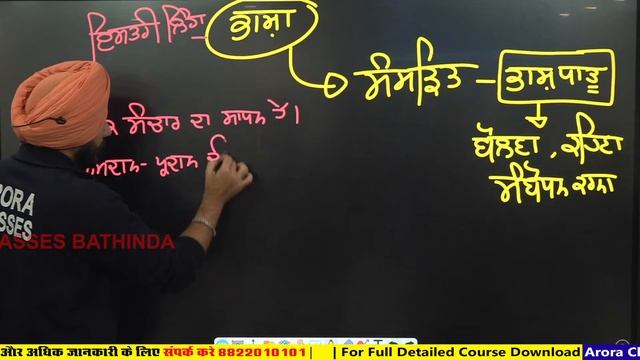 ਇਸਤਰੀ ਲਿੰਗ - ਭਾਸ਼ਾ
ਸੰਸਕ੍ਰਿਤ - ਭਾਸ਼ ਧਾਤੂ
ਬੋਲਣਾ , ਕਹਿਣਾ
ਸੰਬੋਧਨ ਕਰਨਾ
ਸੰਚਾਰ ਦਾ ਸਾਧਨ ਹੈ ।
ਪ੍ਰਦਾਨ
ARORA
CLASSES
ASSES BATHINDA
और अधिक जानकारी के लिए संपर्क करे 8822010101| | For Full Detailed Course Download Arora Cl